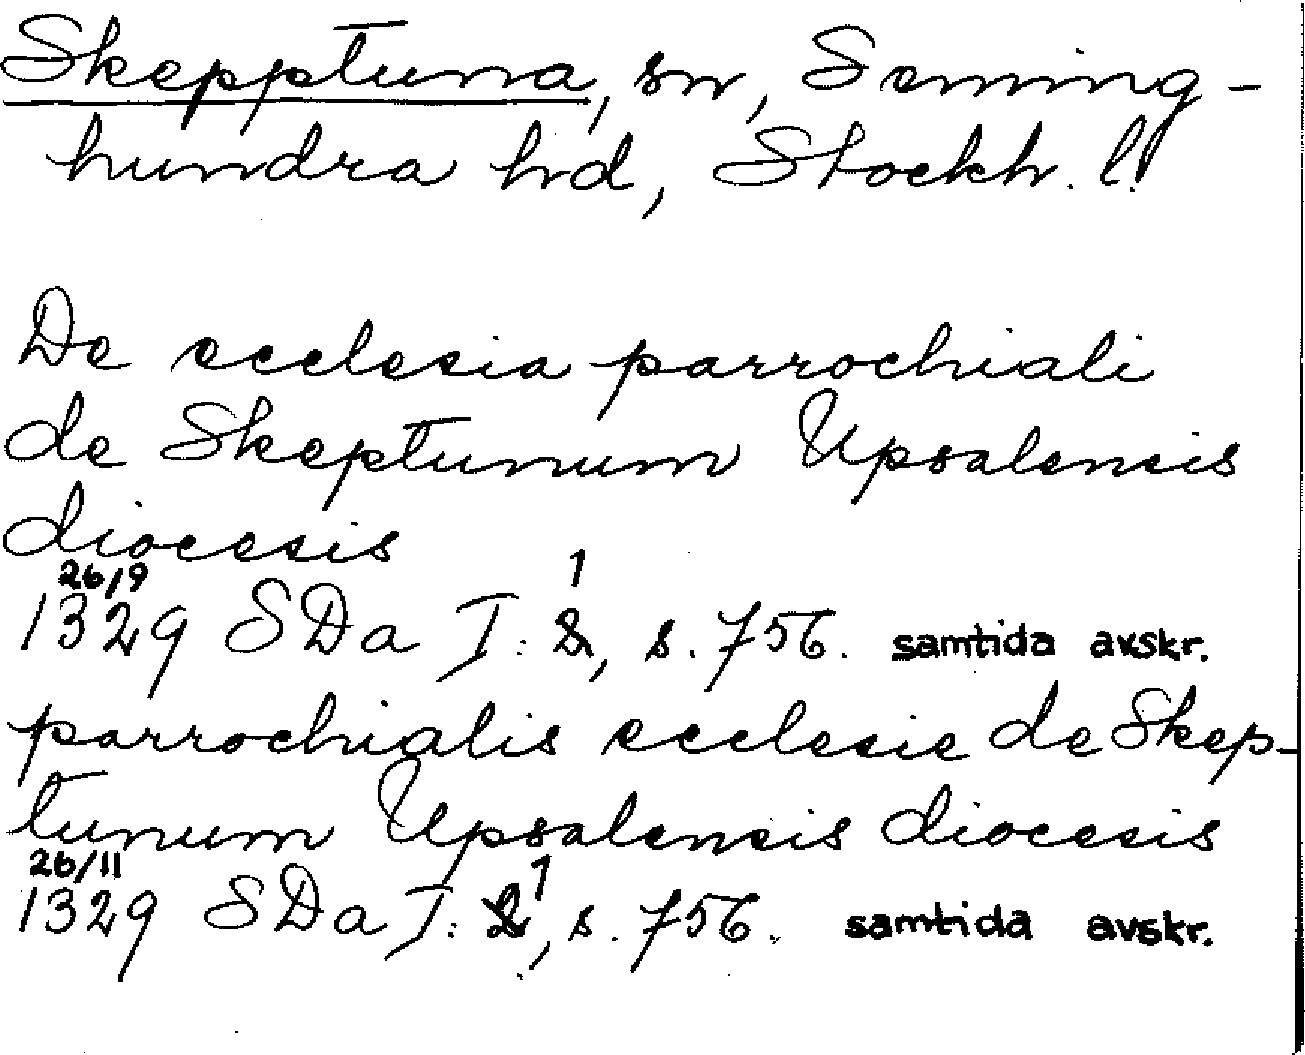 Skepptuna, sn, Seming-
hundra hd, Stockh. l.
De ecclesia parrochiali
de Skeptunum Upsalensis
diocesis
26/9 1
1329 SDa I: 2, s. 756. samtida avskr.
parrochialis ecclesie de Skep-
tunum Upsalensis diocesis
26/11 1
1329 SDa I: 2, s. 756. samtida avskr.